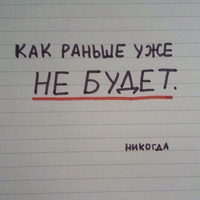 КАК РАНЬШЕ УЖЕ
НЕ БУДЕТ.
НИКОГДА